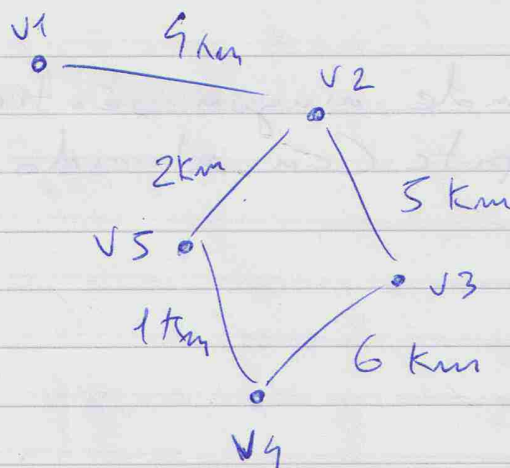 V1
4Km
V2
2Km
5 Km
V5
V3
1Km
6 Km
V4